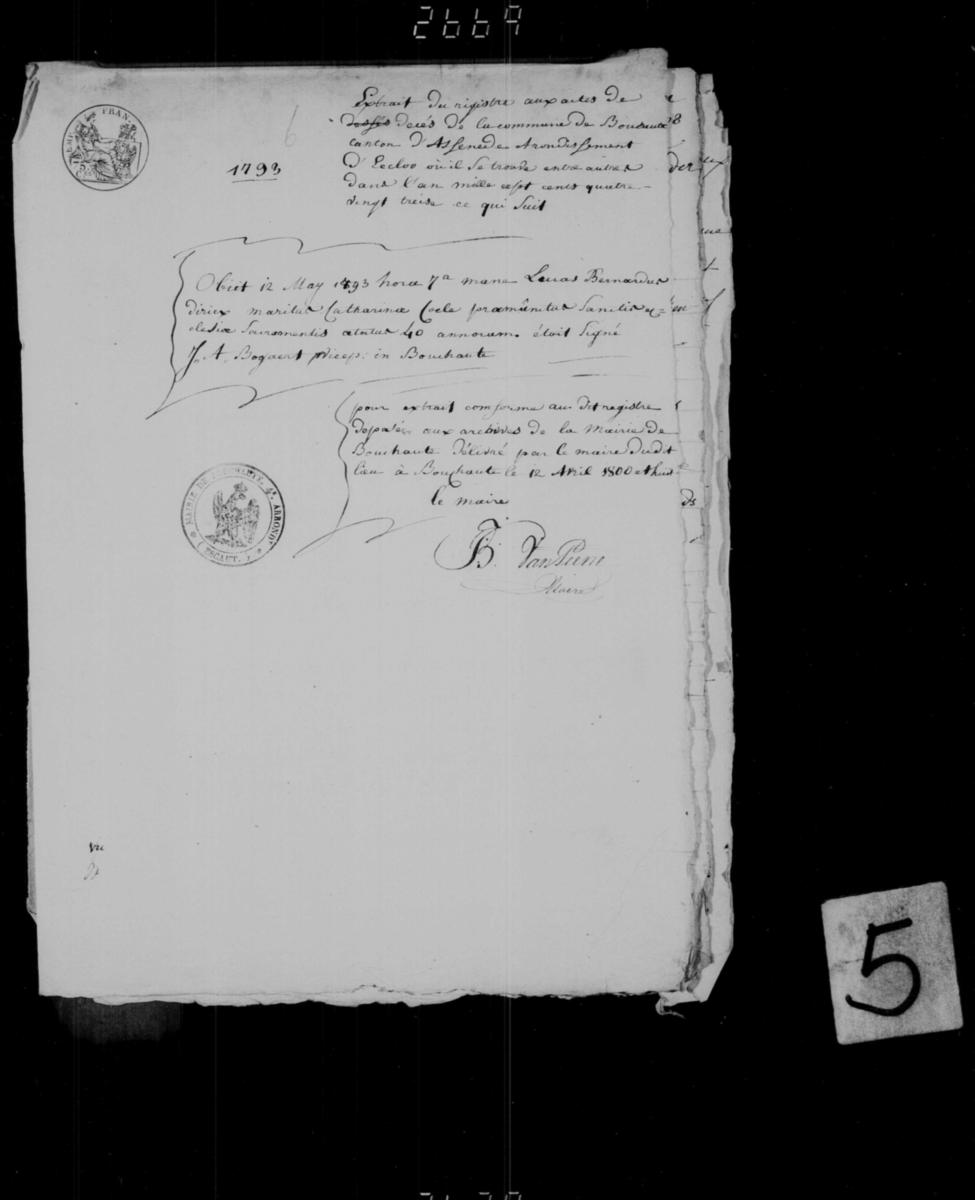 2669
6
1793
Extrait du registre aux actes de
decés de la commune de Bouchaute
canton d'Assenede Arondissement
d'Eecloo où il se trouve entre autres
dans l'an mille sept cents quatre-
vingt treise ce qui suit
Obiit 12 May 1793 hora 7a mane Lucas Bernardus
dirix maritus Catharinæ Coele præmunitus Sanctis ec=
clesiæ Sacramentis ætatis 40 annorum. étoit Signé
J. A. Bogaert in Bouchaute
pour extrait comforme au dit registre
deposée aux archives de la Mairie de
Bouchaute Délivré par le maire dudit
lieu à Bouchaute le 12 Avril 1800 et huit
le maire
MAIRIE DE BOUCHAUTE, 4e. ARRONDt.
( ESCAUT. )
B. Van
Maire
5